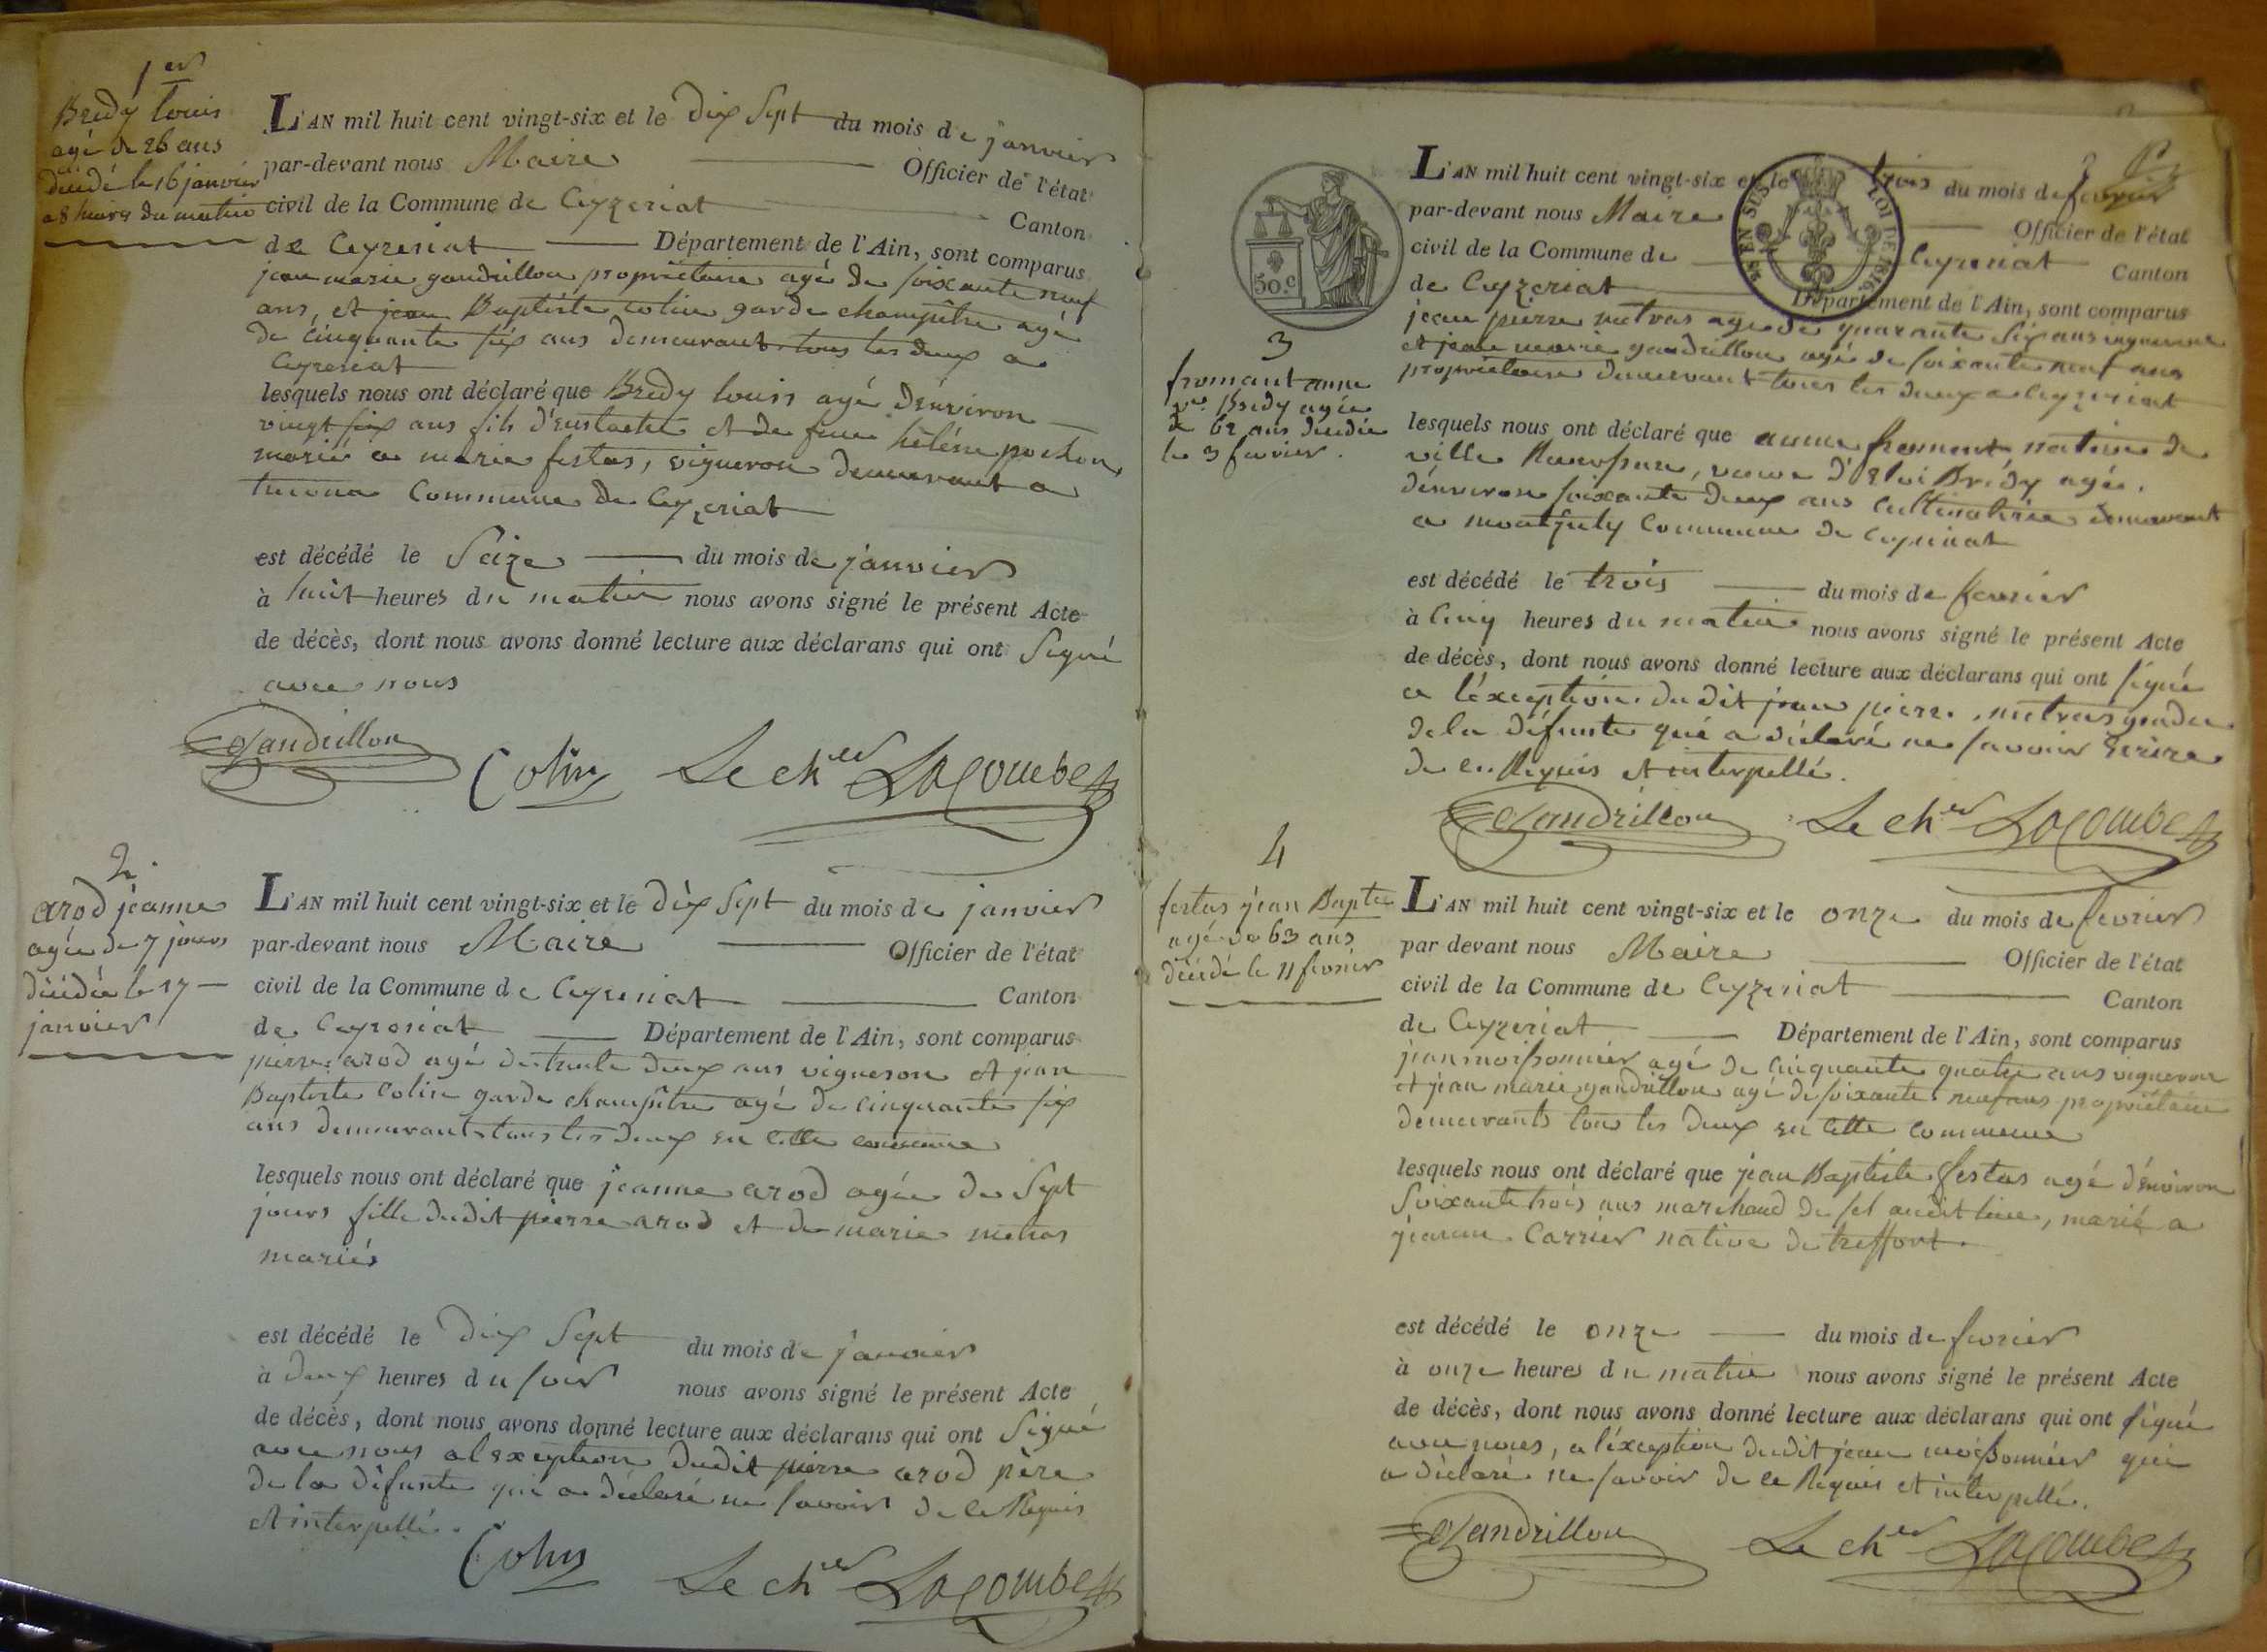 1er
Bredy Louis
agé de 26 ans
décédé le 16 janvier
a 8 heures du matin
L'AN mil huit cent vingt-six et le dix Sept du mois de janvier
par-devant nous Maire Officier de l'état
civil de la Commune de Ceyzeriat Canton
de Ceyzeriat Département de l'Ain, sont comparus
jean marie gandrillon propriétaire agé de soixante neuf
ans, et jean Baptiste Colin garde champêtre agé
de cinquante six ans demeurant tous les deux a
Ceyzeriat
lesquels nous ont déclaré que Bredy Louis agé d'énviron
vingt six ans fils d'Eustache et de feue héléne pochon,
marié a marie festas, vigneron demeurant a
Commune de Ceyzeriat
est décédé le Seize du mois de janvier
à huit heures du matin nous avons signé le présent Acte
de décès, dont nous avons donné lecture aux déclarans qui ont Signé
avec nous
Gandrillon Colin Le cher Lacombe
2
arod jeanne
agée de 7 jours
décédée le 17
janvier
L'AN mil huit cent vingt-six et le dix Sept du mois de janvier
par-devant nous Maire Officier de l'état
civil de la Commune de Ceyzeriat Canton
de Ceyzeriat Département de l'Ain, sont comparus
pierre arod agé de trente deux ans vigneron et jean
Baptiste Colin garde champêtre agé de cinquante six
ans demeurant tous les deux en cette commune
lesquels nous ont déclaré que jeanne arod agée de Sept
jours fille dudit pierre arod et de marie metras
mariés
est décédé le dix Sept du mois de janvier
à deux heures du soir nous avons signé le présent Acte
de décès, dont nous avons donné lecture aux déclarans qui ont Signé
avec nous a l'exception dudit pierre arod père
de la défunte qui a déclaré ne savoir de ce Requis
et interpellé.
Colin Le cher Lacombe
50.c
EN SUS LOI DE 1816
3
fromant anne
ve Bredy agée
de 62 ans décédée
le 3 fevrier.
L'AN mil huit cent vingt-six et le trois du mois de fevrier
par-devant nous Maire Officier de l'état
civil de la Commune de Ceyzeriat Canton
de Ceyzeriat Département de l'Ain, sont comparus
jean pierre metras agé de quarante six ans vigneron
et jean marie gandrillon agé de soixante neuf ans
propriétaire demeurant tous les deux a Ceyzeriat
lesquels nous ont déclaré que anne froment native de
ville Reversure, veuve d'Eloi Brédy agée
d'énviron soixante deux ans Cultivatrice demeurant
a montjuly Commune de Ceyzeriat
est décédé le trois du mois de fevrier
à Cinq heures du matin nous avons signé le présent Acte
de décès, dont nous avons donné lecture aux déclarans qui ont signé
a l'éxception dudit jean pierre metras gendre
de la défunte qui a déclaré ne savoir écrire
de ce Requis et interpellé.
Gandrillon Le cher Lacombe
4
festas jean Bapte
agé de 63 ans
décédé le 11 fevrier
L'AN mil huit cent vingt-six et le onze du mois de fevrier
par devant nous Maire Officier de l'état
civil de la Commune de Ceyzeriat Canton
de Ceyzeriat Département de l'Ain, sont comparus
jean moissonnier agé de cinquante quatre ans vigneron
et jean marie gandrillon agé de soixante neuf ans propriétaire
demeurants tous les deux en cette commune
lesquels nous ont déclaré que jean Baptiste festas agé d'énviron
Soixante trois ans marchand de sel audit lieu, marié a
jeanne Carrier native de treffort.
est décédé le onze du mois de fevrier
à onze heures du matin nous avons signé le présent Acte
de décès, dont nous avons donné lecture aux déclarans qui ont signé
avec nous, a l'éxception dudit jean moissonnier qui
a déclaré ne savoir de ce Requis et interpellé.
Gandrillon Le cher Lacombe